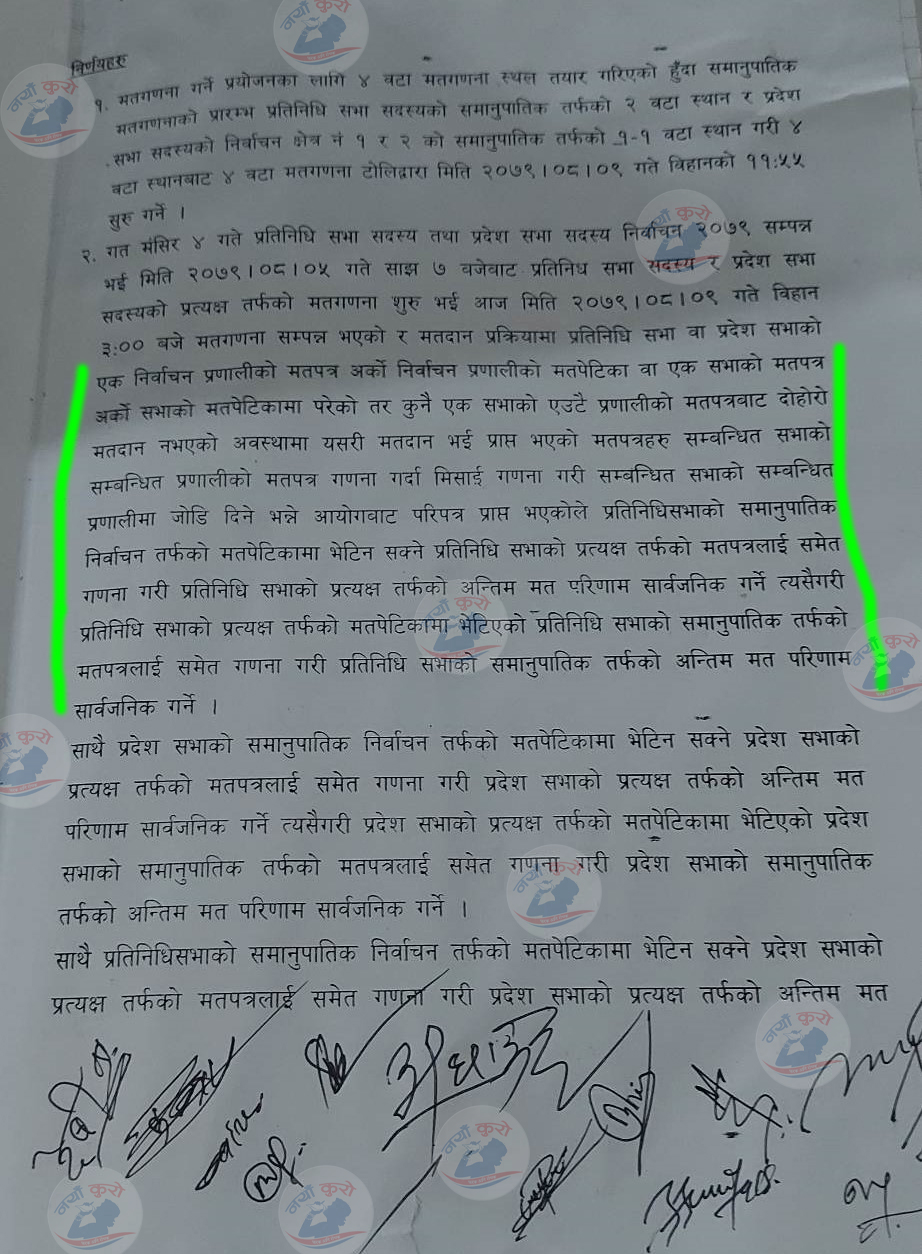 निर्णयहरु
१. मतगणना गर्ने प्रयोजनका लागि ४ वटा मतगणना स्थल तयार गरिएको हुँदा समानुपातिक
मतगणनाको प्रारम्भ प्रतिनिधि सभा सदस्यको समानुपातिक तर्फको २ वटा स्थान र प्रदेश
सभा सदस्यको निर्वाचन क्षेत्र नं १ र २ को समानुपातिक तर्फको १-१ वटा स्थान गरी ४
वटा स्थानबाट ४ वटा मतगणना टोलिद्वारा मिति २०७९।०८।०९ गते विहानको ११:५५
सुरु गर्ने ।
२. गत मंसिर ४ गते प्रतिनिधि सभा सदस्य तथा प्रदेश सभा सदस्य निर्वाचन २०७९ सम्पन्न
भई मिति २०७९।०८।०५ गते साझ ७ वजेवाट प्रतिनिध सभा सदस्य र प्रदेश सभा
सदस्यको प्रत्यक्ष तर्फको मतगणना शुरु भई आज मिति २०७९।०८।०९ गते विहान
३:०० बजे मतगणना सम्पन्न भएको र मतदान प्रक्रियामा प्रतिनिधि सभा वा प्रदेश सभाको
एक निर्वाचन प्रणालीको मतपत्र अर्को निर्वाचन प्रणालीको मतपेटिका वा एक सभाको मतपत्र
अर्को सभाको मतपेटिकामा परेको तर कुनै एक सभाको एउटै प्रणालीको मतपत्रवाट दोहोरो
मतदान नभएको अवस्थामा यसरी मतदान भई प्राप्त भएको मतपत्रहरु सम्बन्धित सभाको
सम्बन्धित प्रणालीको मतपत्र गणना गर्दा मिसाई गणना गरी सम्बन्धित सभाको सम्बन्धित
प्रणालीमा जोडि दिने भन्ने आयोगवाट परिपत्र प्राप्त भएकोले प्रतिनिधिसभाको समानुपातिक
निर्वाचन तर्फको मतपेटिकामा भेटिन सक्ने प्रतिनिधि सभाको प्रत्यक्ष तर्फको मतपत्रलाई समेत
गणना गरी प्रतिनिधि सभाको प्रत्यक्ष तर्फको अन्तिम मत परिणाम सार्वजनिक गर्ने त्यसैगरी
प्रतिनिधि सभाको प्रत्यक्ष तर्फको मतपेटिकामा भेटिएको प्रतिनिधि सभाको समानुपातिक तर्फको
मतपत्रलाई समेत गणना गरी प्रतिनिधि सभाको समानुपातिक तर्फको अन्तिम मत परिणाम
सार्वजनिक गर्ने ।
साथै प्रदेश सभाको समानुपातिक निर्वाचन तर्फको मतपेटिकामा भेटिन सक्ने प्रदेश सभाको
प्रत्यक्ष तर्फको मतपत्रलाई समेत गणना गरी प्रदेश सभाको प्रत्यक्ष तर्फको अन्तिम मत
परिणाम सार्वजनिक गर्ने त्यसैगरी प्रदेश सभाको प्रत्यक्ष तर्फको मतपेटिकामा भेटिएको प्रदेश
सभाको समानुपातिक तर्फको मतपत्रलाई समेत गणना गरी प्रदेश सभाको समानुपातिक
तर्फको अन्तिम मत परिणाम सार्वजनिक गर्ने ।
साथै प्रतिनिधिसभाको समानुपातिक निर्वाचन तर्फको मतपेटिकामा भेटिन सक्ने प्रदेश सभाको
प्रत्यक्ष तर्फको मतपत्रलाई समेत गणना गरी प्रदेश सभाको प्रत्यक्ष तर्फको अन्तिम मत
नयाँ कुरो